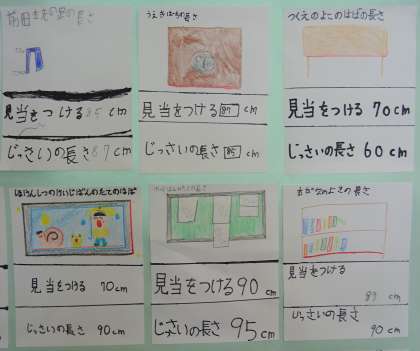 見当をつける 85 cm
じっさいの長さ 87 cm
見当をつける 87 cm
じっさいの長さ 85 cm
つくえのよこのはばの長さ
見当をつける 70cm
じっさいの長さ 60cm
ほけんしつのけいじばんのたてのはば
見当をつける 70cm
じっさいの長さ 90cm
見当をつける 90 cm
じっさいの長さ 95cm
見当をつける
cm
じっさいの長さ
90 cm